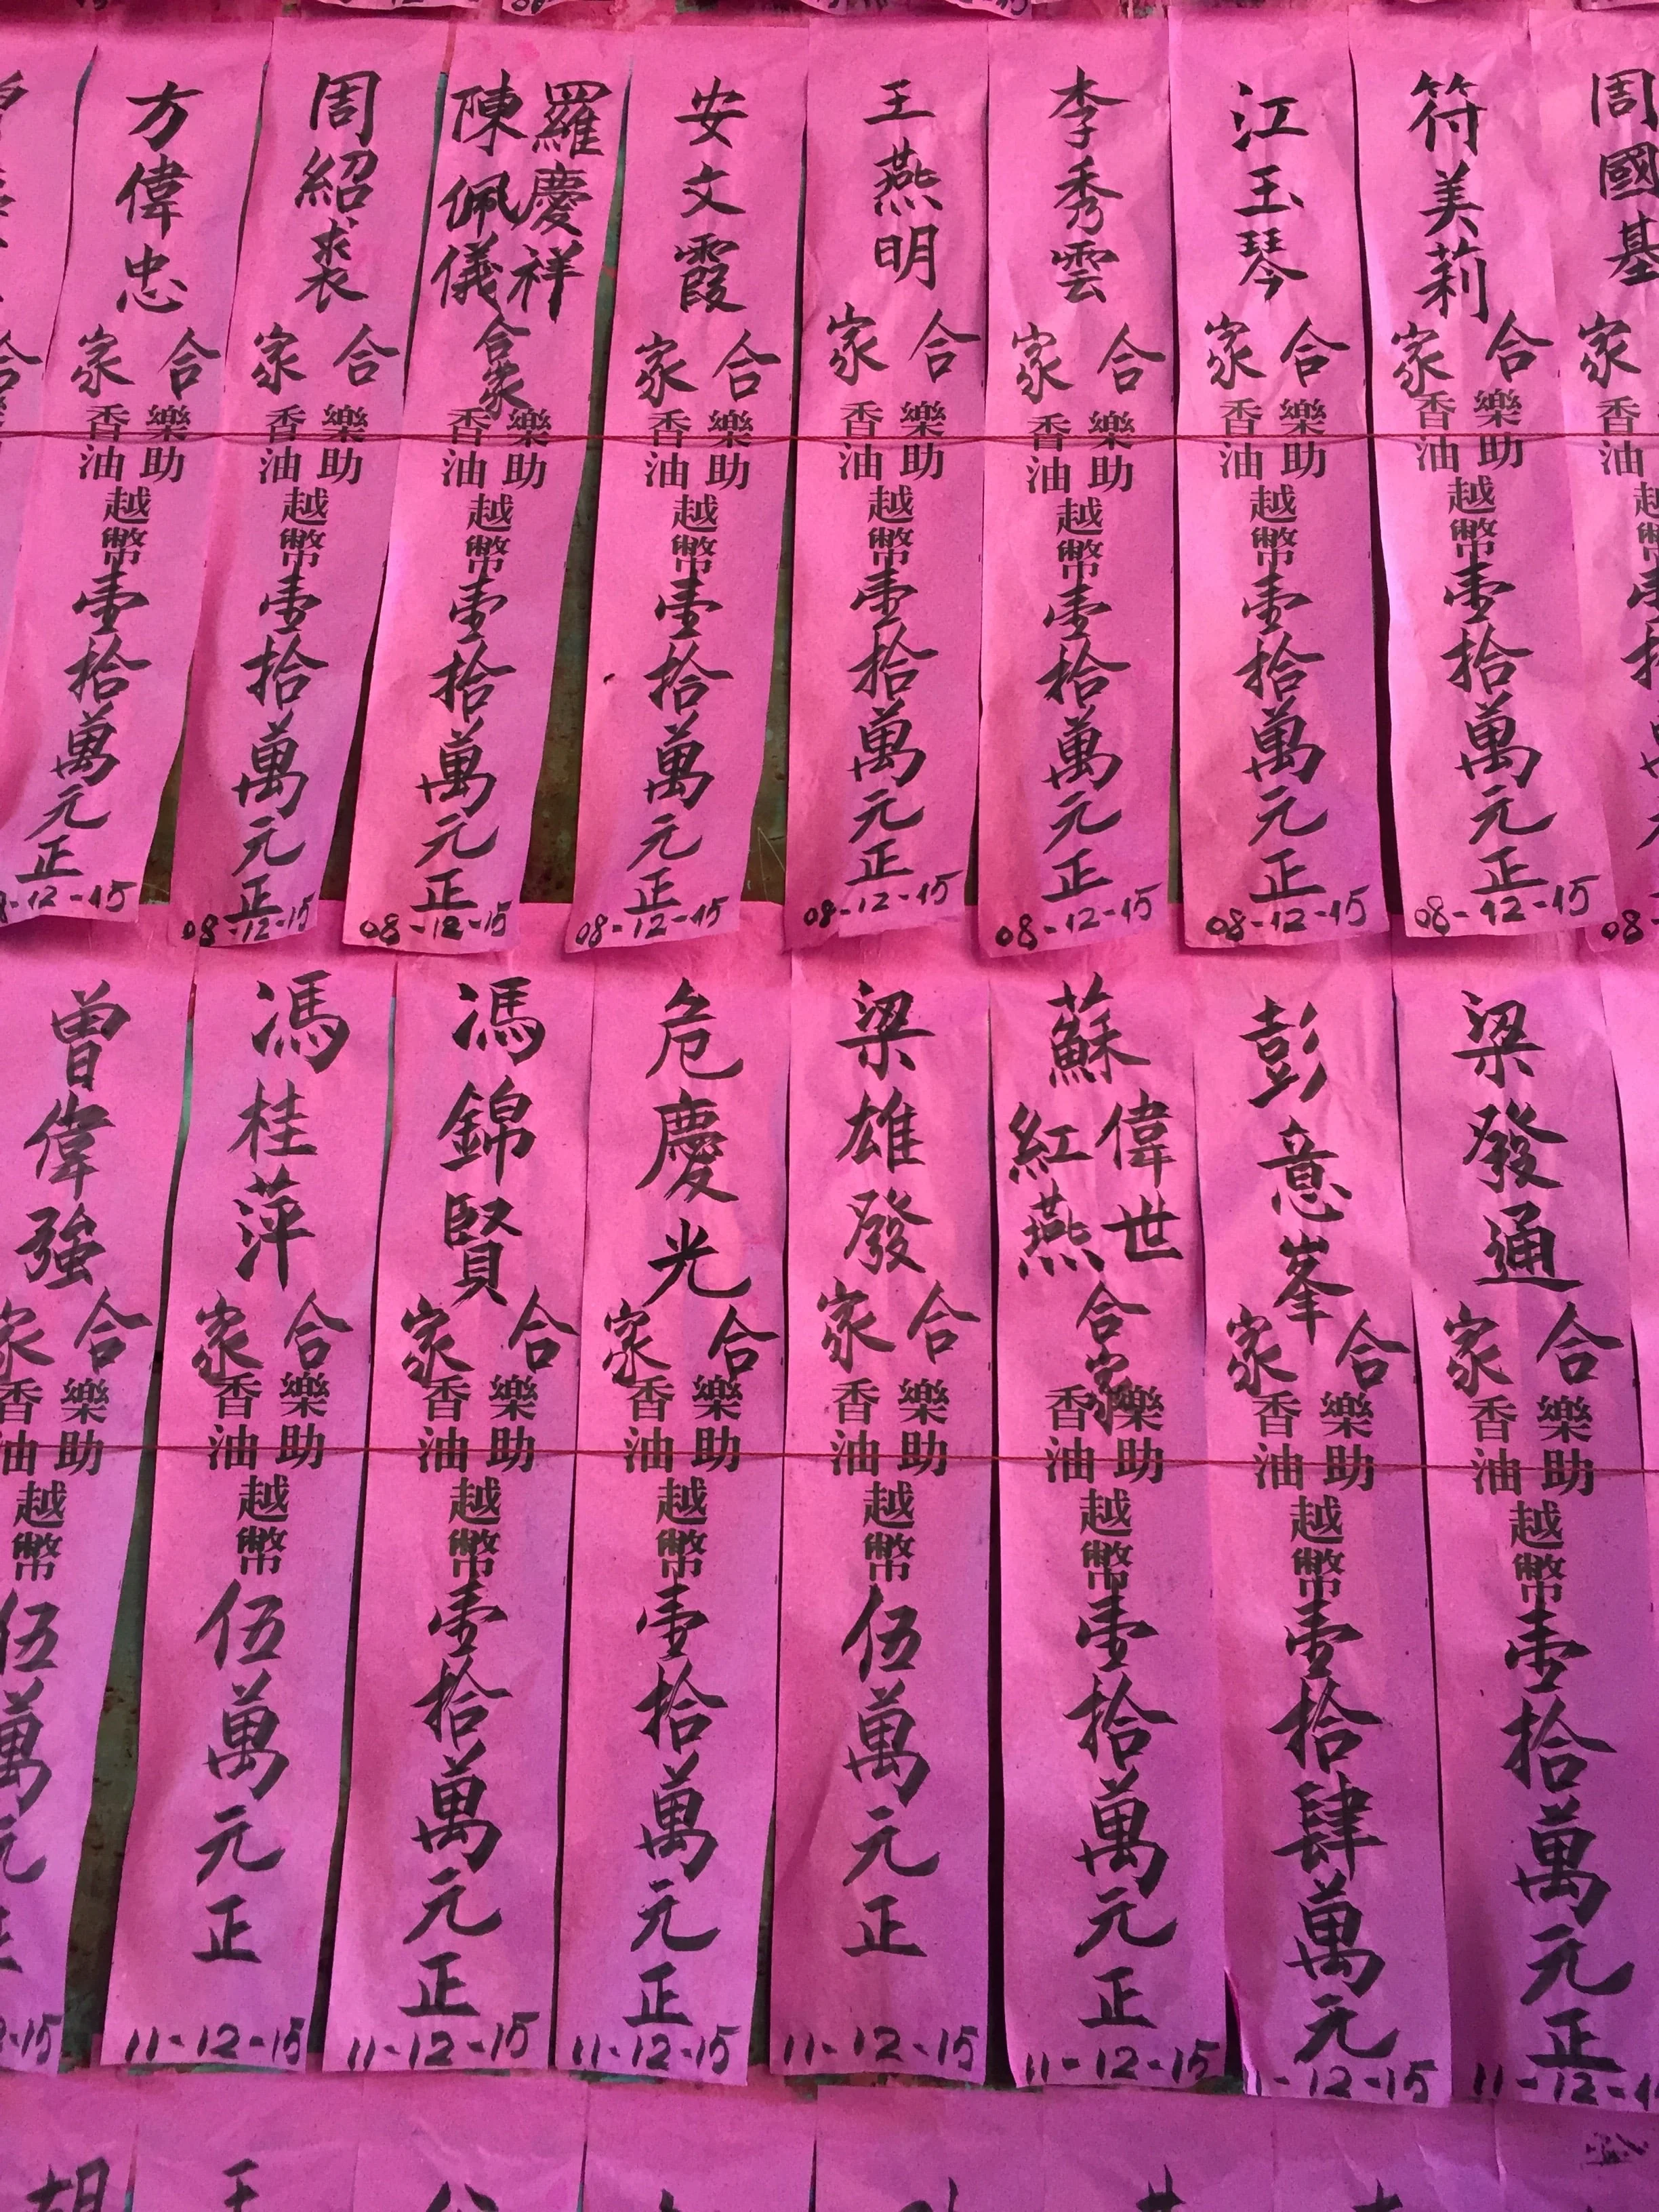 周國基
家
香油
符美莉
合家
樂助香油
越幣
壹拾萬元正
08-12-15
江玉琴
合家
樂助香油
越幣
壹拾萬元正
08-12-15
李秀雲
合家
樂助香油
越幣
壹拾萬元正
08-12-15
王燕明
合家
樂助香油
越幣
壹拾萬元正
08-12-15
安文霞
合家
樂助香油
越幣
壹拾萬元正
08-12-15
羅慶祥
陳佩儀
合家
樂助香油
越幣
壹拾萬元正
08-12-15
周紹裘
合家
樂助香油
越幣
壹拾萬元正
08-12-15
方偉忠
合家
樂助香油
越幣
壹拾萬元正
8-12-15
合
梁發通
合家
樂助香油
越幣
壹拾萬元正
11-12-1
彭意峯
合家
樂助香油
越幣
壹拾肆萬元
1-12-15
蘇
偉世
紅燕
合家
樂助香油
越幣
壹拾萬元正
11-12-15
梁雄發
合家
樂助香油
越幣
伍萬元正
11-12-15
危慶光
合家
樂助香油
越幣
壹拾萬元正
11-12-15
馮錦賢
合家
樂助香油
越幣
壹拾萬元正
11-12-15
馮桂萍
合家
樂助香油
越幣
伍萬元正
11-12-15
曾偉強
合家
樂助香油
越幣
伍萬元正
-15